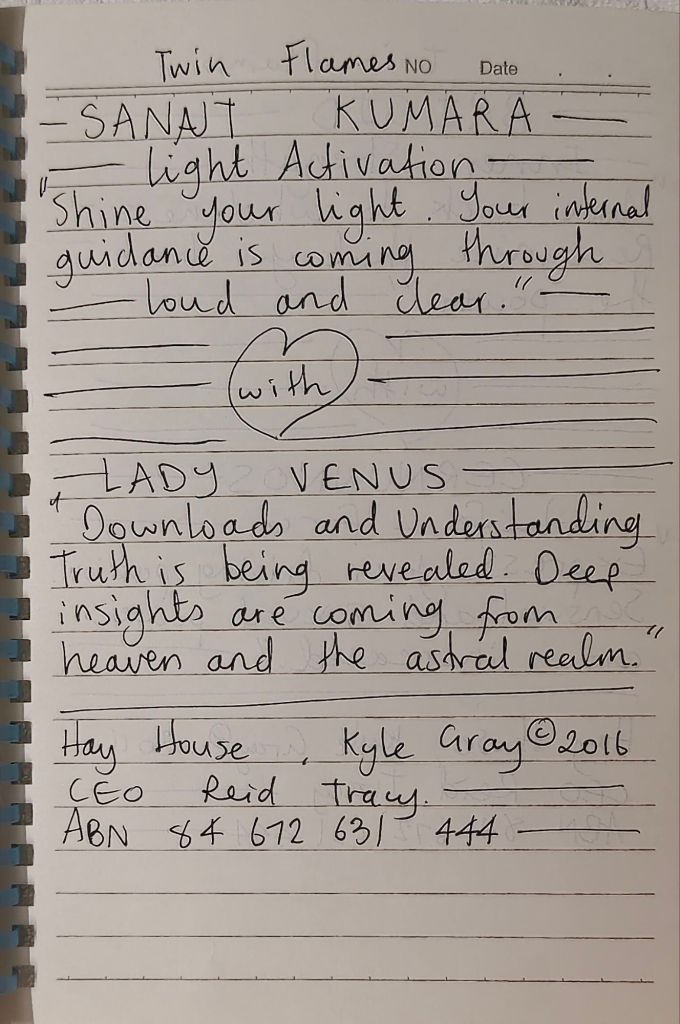 Twin Flames NO Date . .
- SANAJT KUMARA -
- Light Activation -
"Shine your light. Your internal
guidance is coming through
- loud and clear." -
with
- LADY VENUS -
"Downloads and Understanding
Truth is being revealed. Deep
insights are coming from
heaven and the astral realm."
Hay House, Kyle Gray © 2016
CEO Reid Tracy. -
ABN 84 672 631 444 -